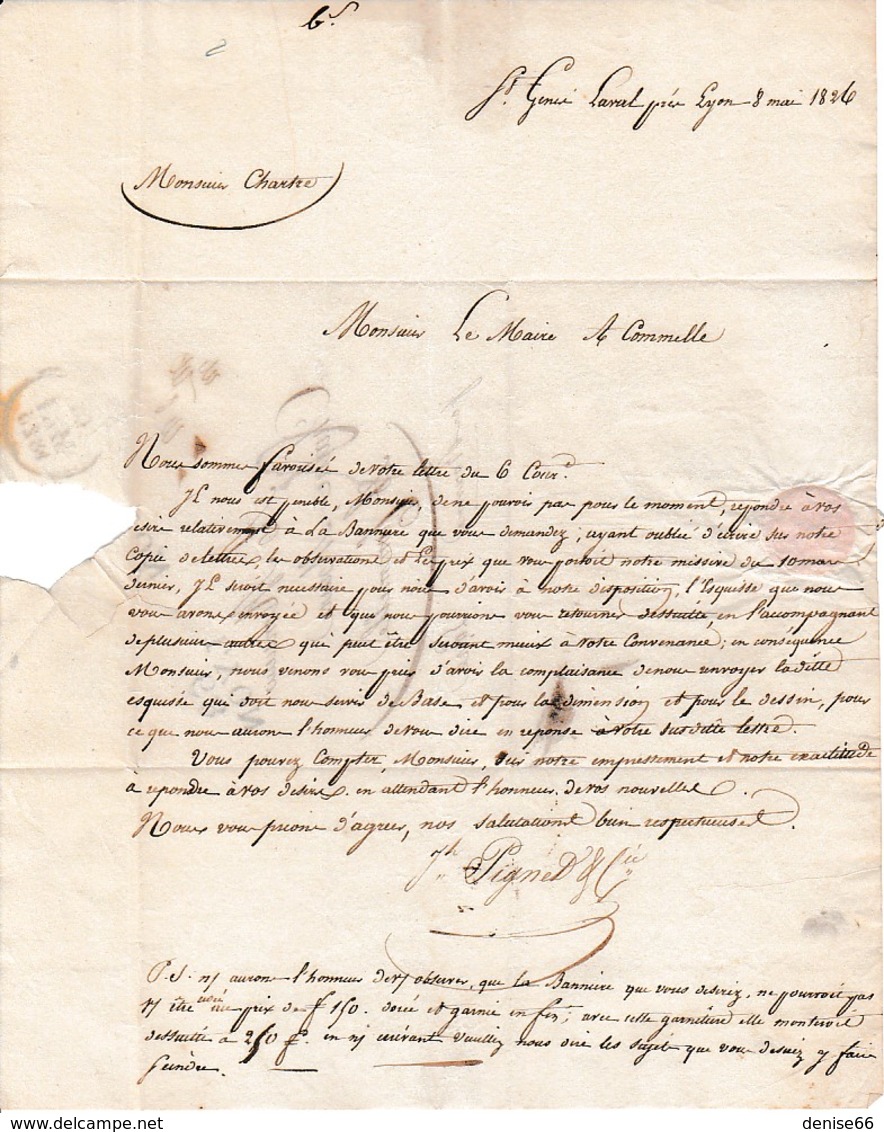 St. Genis Laval près Lyon 8 mai 1826
Monsieur Chartre
Monsieur Le Maire A Commelle
Nous sommes favorisés de votre lettre du 6 Cour.t
Il nous est penible, Monsieur, de ne pouvoir pas pour le moment, repondre à vos
desirs relativement à La Banniere que vous demandez; ayant oublié d'écrire sur notre
Copie de lettres, les observations et Les prix que vous portoit notre missive du 10 mars
dernier, Il seroit necessaire pour nous d'avoir à notre disposition, l'Esquisse que nous
vous avons envoyée et que nous pourrions vous retourner dessuitte, en l'accompagnant
de plusieurs autres qui peut être seroient mieux à votre Convenance; en consequence
Monsieur, nous venons vous prier d'avoir la complaisance de nous renvoyer la ditte
esquisse qui doit nous servir de Base et pour la dimension et pour le dessin, pour
ce que nous aurons l'honneur de vous dire en reponse à votre sus ditte lettre.
Vous pouvez Compter, Monsieur, sur notre empressement et notre exactitude
à repondre à vos desirs. en attendant l'honneur de vos nouvelles.
Nous vous prions d'agreer, nos salutations bien respectueuses.
Jh Pigned & Cie
P.S. nj aurons l'honneur de vj observer, que la Banniere que vous desirez, ne pourroit pas
vj être au prix de f 150. dorée et garnie en fin; avec cette garniture elle monteroit
dessuitte à 250 f. en nj écrivant veuillez nous dire les sujets que vous desirez y faire
peindre.
denise66